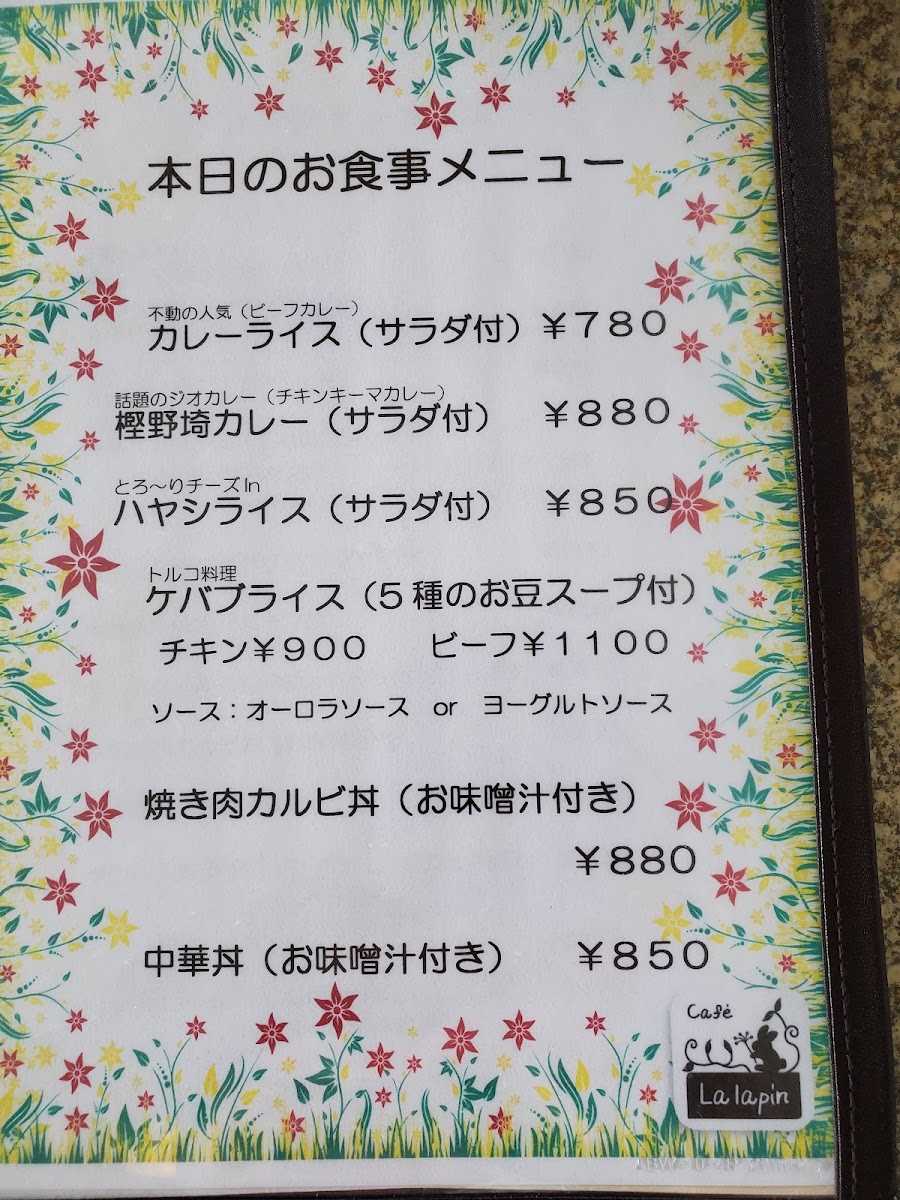 本日のお食事メニュー
不動の人気（ビーフカレー）
カレーライス（サラダ付）￥７８０
話題のジオカレー（チキンキーマカレー）
樫野埼カレー（サラダ付）　￥８８０
とろ～りチーズIn
ハヤシライス（サラダ付）　￥８５０
トルコ料理
ケバブライス（５種のお豆スープ付）
チキン￥９００　ビーフ￥１１００
ソース：オーロラソース　or　ヨーグルトソース
焼き肉カルビ丼（お味噌汁付き）
￥８８０
中華丼（お味噌汁付き）　￥８５０
Café
La lapin